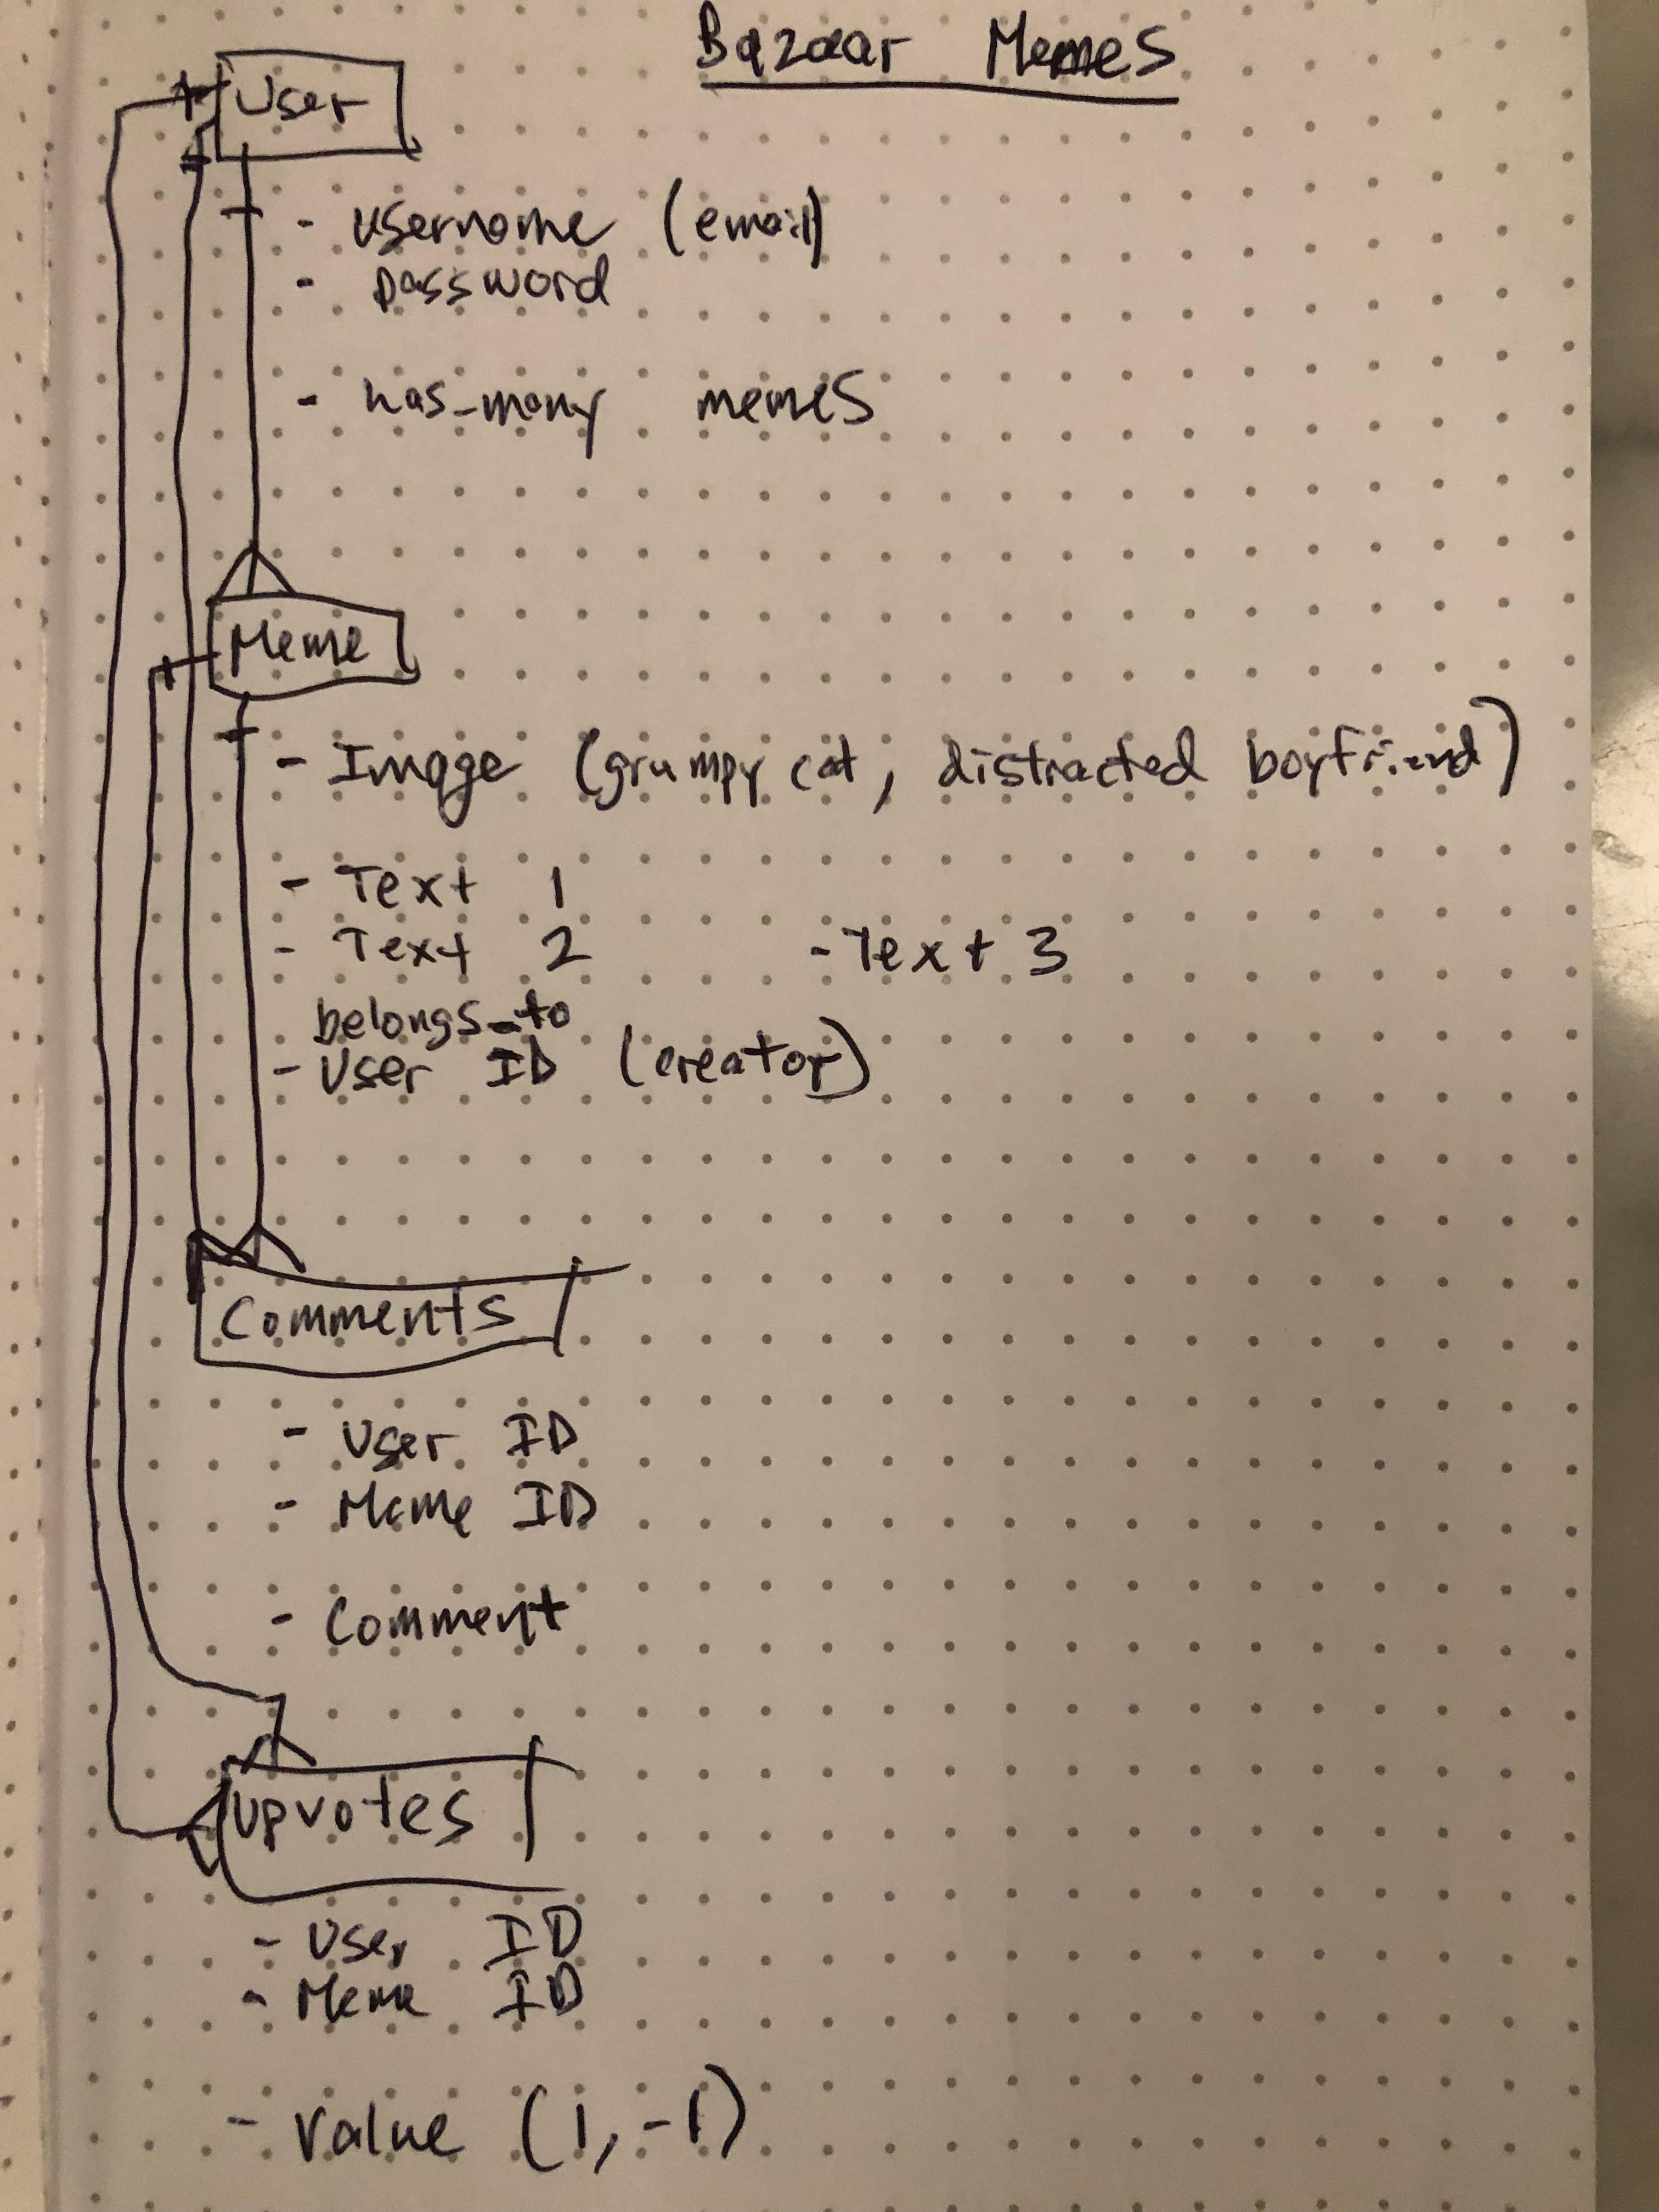 Bazaar Memes
User
- username (email)
- password
- has_many memes
Meme
- Image (grumpy cat, distracted boyfriend)
- Text 1
- Text 2 - Text 3
belongs_to
- User ID (creator)
Comments
- User ID
- Meme ID
- Comment
upvotes
- User ID
- Meme ID
- Value (1, -1)